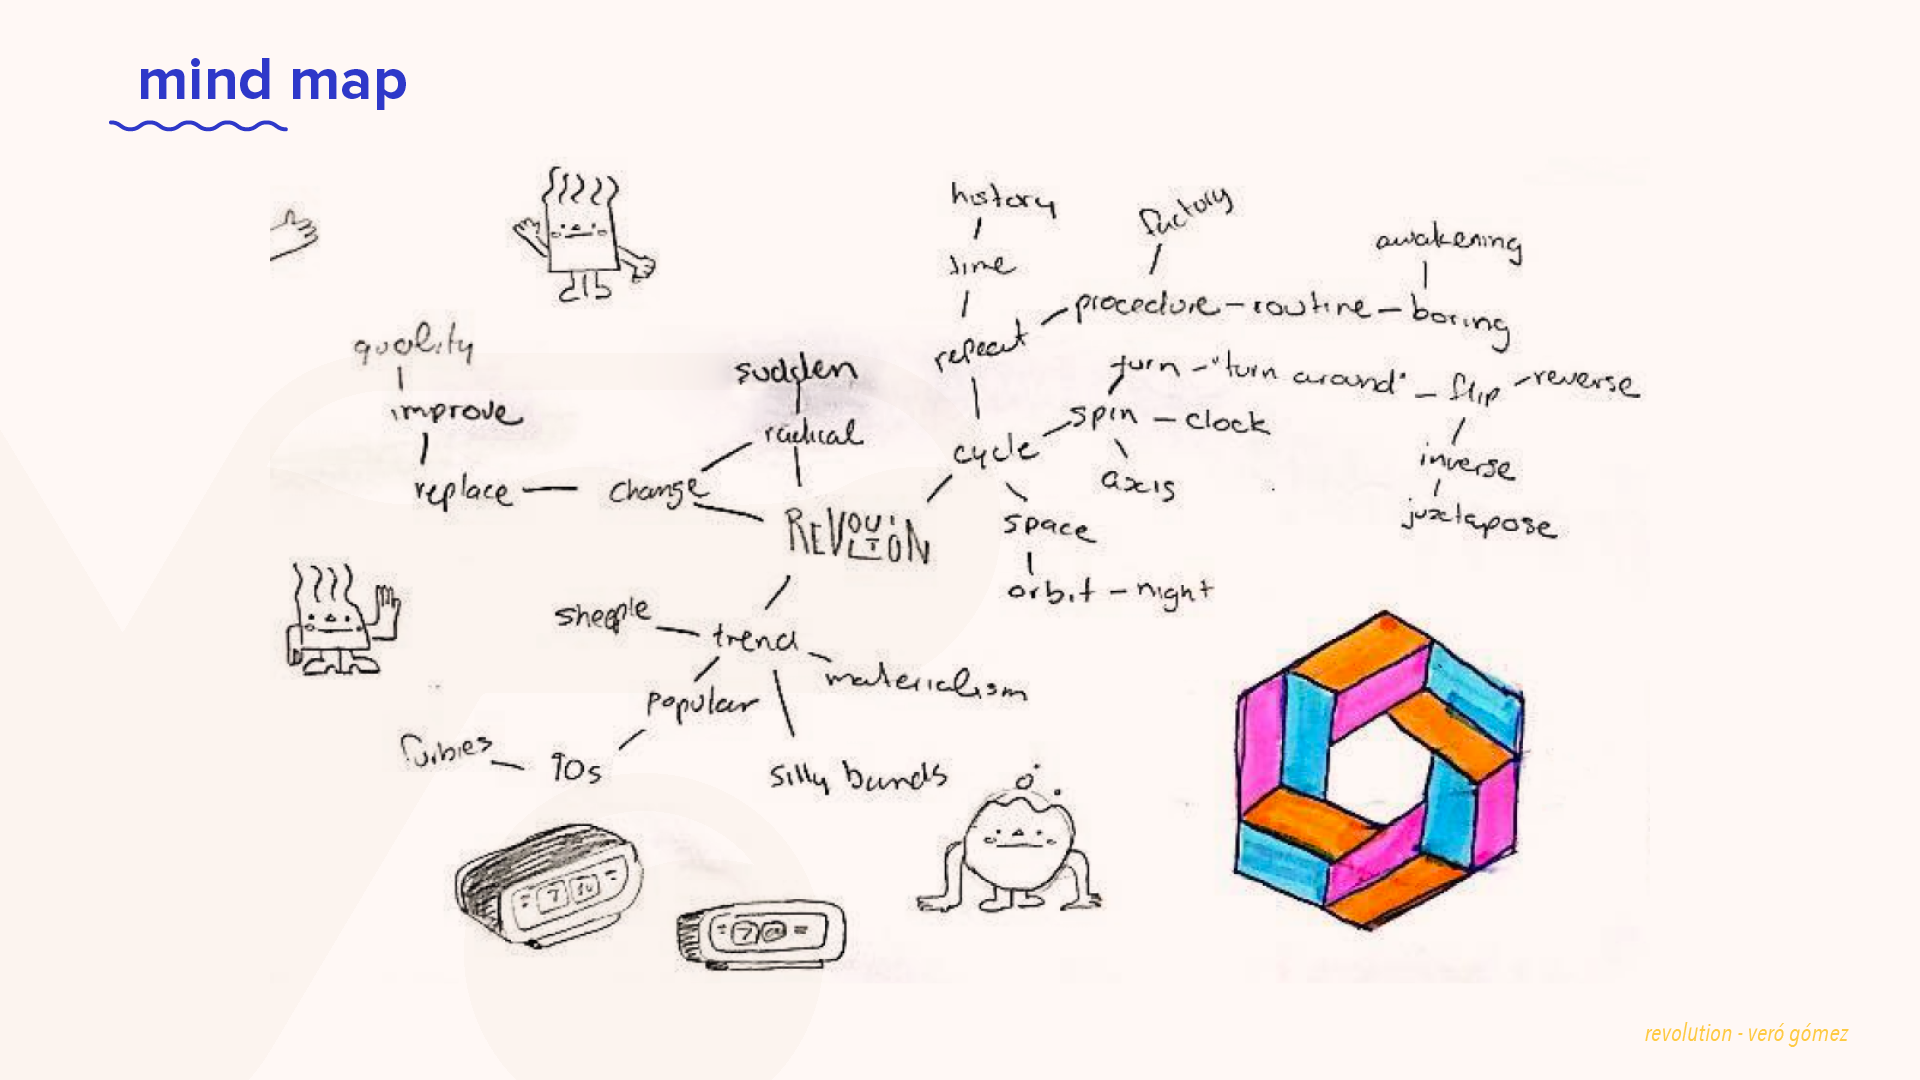 mind map
history
factory
time
awakening
procedure - routine - boring
repeat
quality
sudden
turn - "turn around" - flip - reverse
improve
radical
spin - clock
cycle
inverse
replace
change
axis
juxtapose
REVOLUTION
space
orbit - night
sheeple
trend
materialism
popular
furbies
90s
silly bands
7
7
revolution - veró gómez